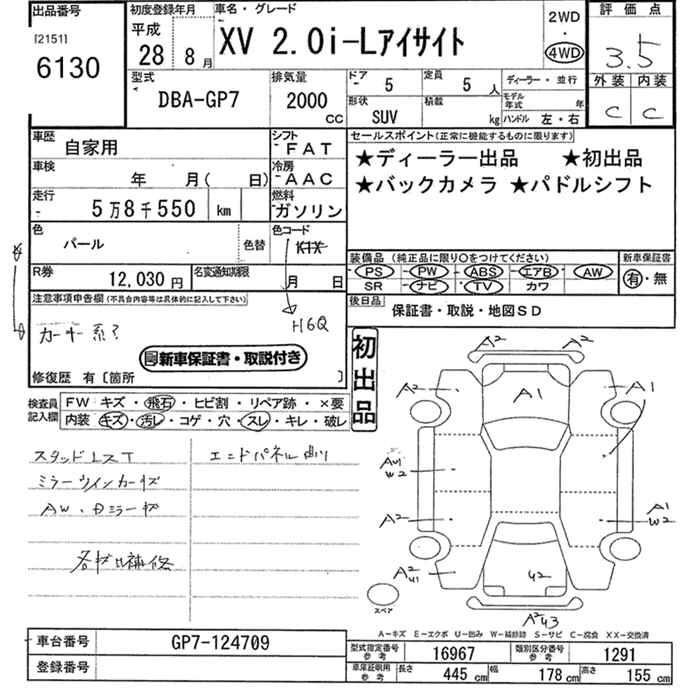 出品番号
[2151]
6130
初度登録年月
平成
28 8月
車名・グレード
XV 2.0i-Lアイサイト
2WD
・
4WD
評価点
3.5
外装 内装
C C
型式
DBA-GP7
排気量
2000
CC
ドア 5
定員 5人
ディーラー・並行
形状 SUV
積載 kg
モデル年式 年
ハンドル 左・右
車歴
自家用
シフト
FAT
車検 年 月( 日)
冷房
AAC
走行
5万8千550 km
燃料
ガソリン
色
パール
色替
色コード
K1X
R券 12,030円
名変通知期限 月 日
H6Q
セールスポイント(正常に機能するものに限ります)
★ディーラー出品 ★初出品
★バックカメラ ★パドルシフト
装備品 (純正品に限り○をつけてください)
PS PW ABS エアB AW
SR ナビ TV カワ
新車保証書
有・無
後日品
保証書・取説・地図SD
注意事項申告欄(不具合内容等は具体的に記入して下さい)
新車保証書・取説付き
修復歴 有〔箇所 〕
初出品
検査員記入欄
FW キズ・飛石・ヒビ割・リペア跡・×要
内装 キズ・汚レ・コゲ・穴・スレ・キレ・破レ
ミラーウインカーキズ
エンドパネル曲リ
A2
A2
A2
A1
A1
AU1
W2
A1
W2
A2
A2
U1
U2
A2 U3
スペア
A-キズ E-エクボ U-凹み W-補修跡 S-サビ C-腐食 XX-交換済
車台番号 GP7-124709
登録番号
型式指定番号 参考 16967
類別区分番号 参考 1291
車庫証明用 参考 長さ 445cm 幅 178cm 高さ 155cm